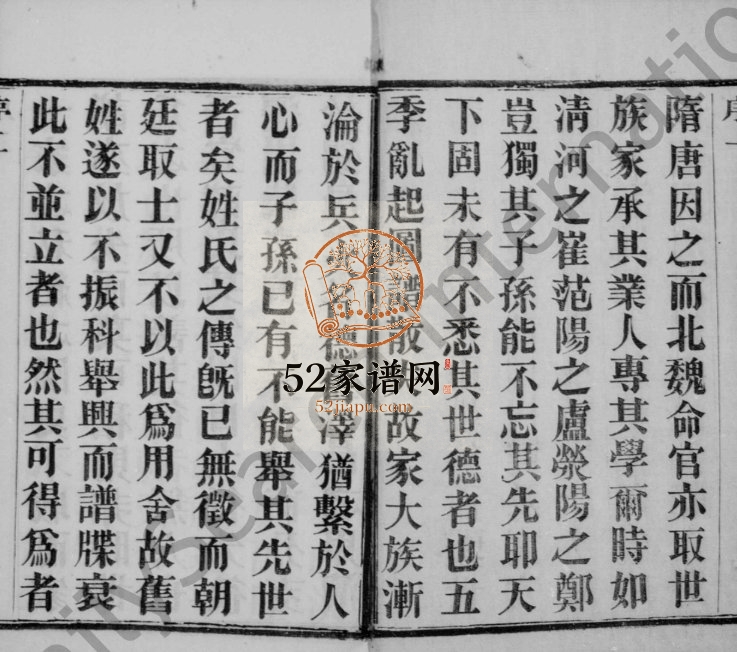 隋唐因之而北魏命官亦取世
族家承其業人專其學爾時如
清河之崔范陽之盧滎陽之鄭
豈獨其子孫能不忘其先耶天
下固未有不悉其世德者也五
季亂起圖譜散故家大族漸
淪於兵名德澤猶繫於人
心而子孫已有不能舉其先世
者矣姓氏之傳旣已無徵而朝
廷取士又不以此爲用舍故舊
姓遂以不振科舉興而譜牒衰
此不並立者也然其可得爲者
52家谱网
52jiapu.com